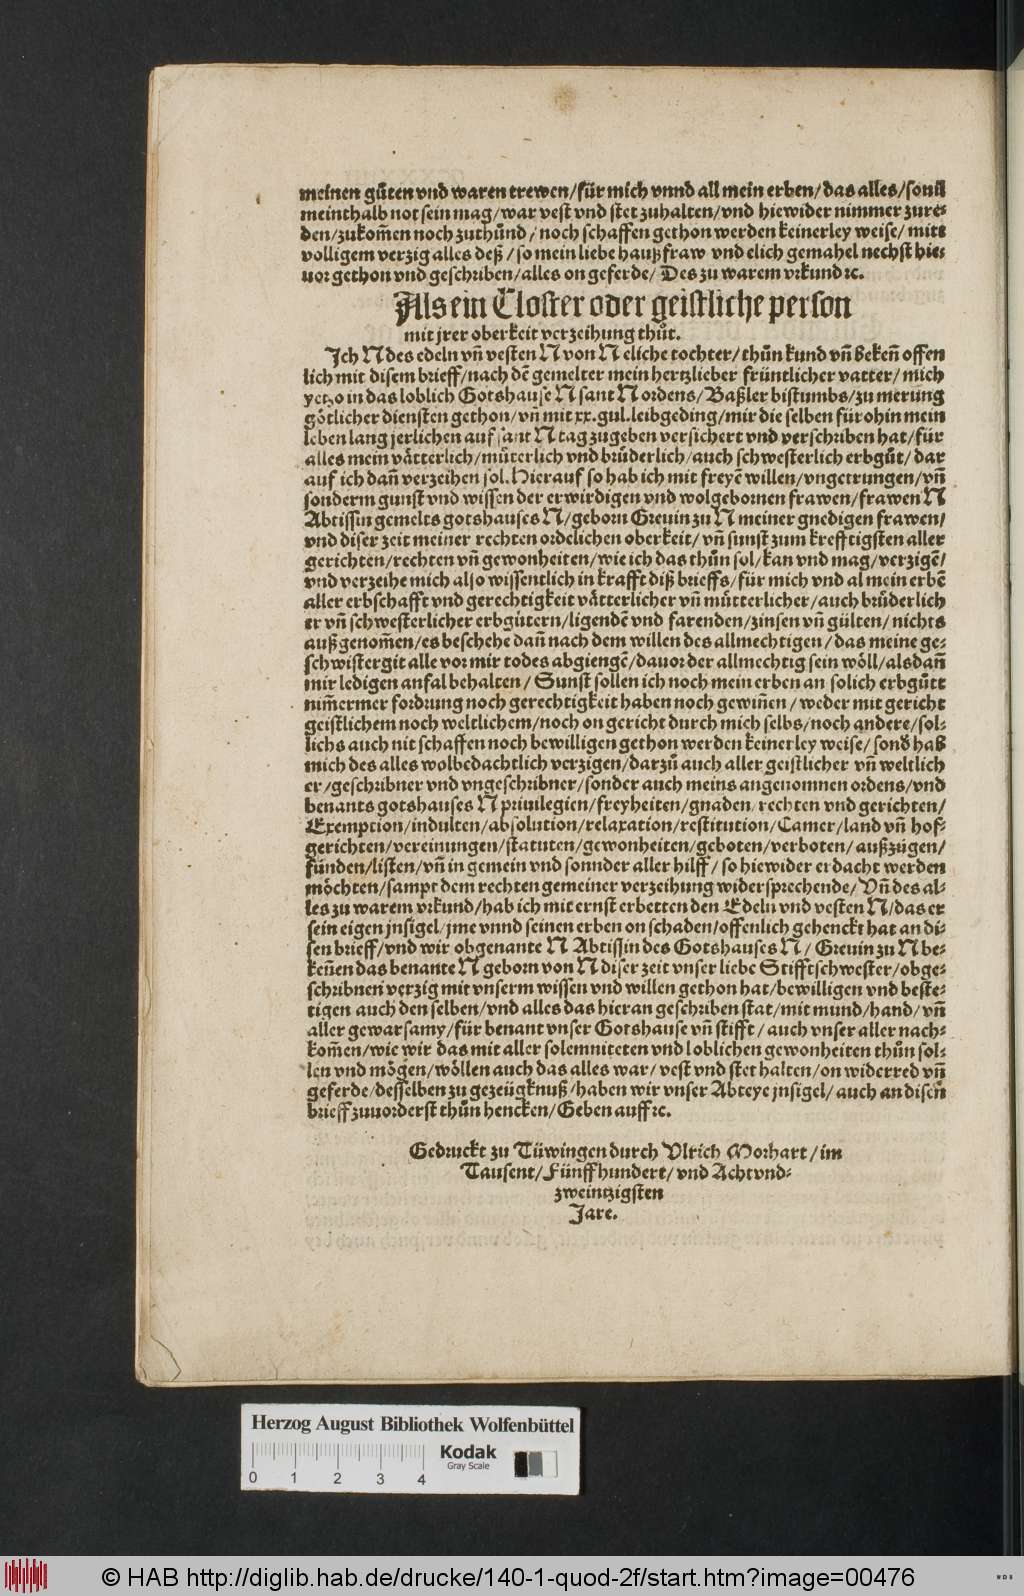 meinen gůten vnd waren trewen/für mich vnnd all mein erben/das alles/souil
meinthalb not sein mag/war vest vnd stet zuhalten/vnd hiewider nimmer zure⸗
den/zukom̃en noch zuthůnd/noch schaffen gethon werden keinerley weise/mitt
volligem verzig alles deß/so mein liebe haußfraw vnd elich gemahel nechst hie⸗
uor gethon vnd geschriben/alles on geferde/Des zu warem vrkund ꝛc.
Als ein Closter oder geistliche person
mit jrer oberkeit verzeihung thůt.
Ich N des edeln vñ vesten N von N eliche tochter/thůn kund vñ bekeñ offen
lich mit disem brieff/nach dẽ gemelter mein hertzlieber früntlicher vatter/mich
yetzo in das loblich Gotshause N sant N ordens/Baßler bistumbs/zu merung
götlicher diensten gethon/vñ mit xx.gul.leibgeding/mir die selben fürohin mein
leben lang jerlichen auf sant N tag zugeben versichert vnd verschriben hat/für
alles mein vätterlich/můterlich vnd brüderlich/auch schwesterlich erbgůt/dar
auf ich dañ verzeihen sol. Hierauf so hab ich mit freyẽ willen/vngetrungen/vñ
sonderm gunst vnd wissen der erwirdigen vnd wolgebornen frawen/frawen N
Abtissin gemelts gotshauses N/geborn Greuin zu N meiner gnedigen frawen/
vnd diser zeit meiner rechten ordelichen oberkeit/vñ sunst zum krefftigsten aller
gerichten/rechten vñ gewonheiten/wie ich das thůn sol/kan vnd mag/verzigẽ/
vnd verzeihe mich also wissentlich in krafft diß brieffs/für mich vnd al mein erbẽ
aller erbschafft vnd gerechtigkeit vätterlicher vñ můtterlicher/auch brüderlich
er vñ schwesterlicher erbgütern/ligendẽ vnd farenden/zinsen vñ gülten/nichts
außgenom̃en/es beschehe dañ nach dem willen des allmechtigen/das meine ge⸗
schwistergit alle vor mir todes abgiengẽ/dauor der allmechtig sein wöll/alsdañ
mir ledigen anfal behalten/Sunst sollen ich noch mein erben an solich erbgůtt
nim̃ermer fordrung noch gerechtigkeit haben noch gewiñen/weder mit gericht
geistlichem noch weltlichem/noch on gericht durch mich selbs/noch andere/sol⸗
lichs auch nit schaffen noch bewilligen gethon werden keinerley weise/sond̃ hab
mich des alles wolbedachtlich verzigen/darzů auch aller geistlicher vñ weltlich
er/geschribner vnd vngeschribner/sonder auch meins angenomnen ordens/vnd
benants gotshauses N priuilegien/freyheiten/gnaden/rechten vnd gerichten/
Exemption/indulten/absolution/relaxation/restitution/Camer/land vñ hof⸗
gerichten/vereinungen/statuten/gewonheiten/geboten/verboten/außzügen/
fünden/listen/vñ in gemein vnd sonnder aller hilff/so hiewider erdacht werden
möchten/sampt dem rechten gemeiner verzeihung widersprechende/Vñ des al⸗
les zu warem vrkund/hab ich mit ernst erbetten den Edeln vnd vesten N/das er
sein eigen jnsigel/jme vnnd seinen erben on schaden/offenlich gehenckt hat an di⸗
sen brieff/vnd wir obgenante N Abtissin des Gotshauses N/Greuin zu N be⸗
keñen das benante N geborn von N diser zeit vnser liebe Stifftschwester/obge⸗
schribnen verzig mit vnserm wissen vnd willen gethon hat/bewilligen vnd beste⸗
tigen auch den selben/vnd alles das hieran geschriben stat/mit mund/hand/vñ
aller gewarsamy/für benant vnser Gotshause vñ stifft/auch vnser aller nach⸗
kom̃en/wie wir das mit aller solemniteten vnd loblichen gewonheiten thůn sol⸗
len vnd mögen/wöllen auch das alles war/vest vnd stet halten/on widerred vñ
geferde/desselben zu gezeügknuß/haben wir vnser Abteye jnsigel/auch an disen
brieff zuuorderst thůn hencken/Geben auff ꝛc.
Gedruckt zu Tüwingen durch Vlrich Morhart/im
Tausent/Fünffhundert/vnd Achtvnd⸗
zweintzigsten
Jare.
Herzog August Bibliothek Wolfenbüttel
Kodak
Gray Scale
0 1 2 3 4
© HAB http://diglib.hab.de/drucke/140-1-quod-2f/start.htm?image=00476